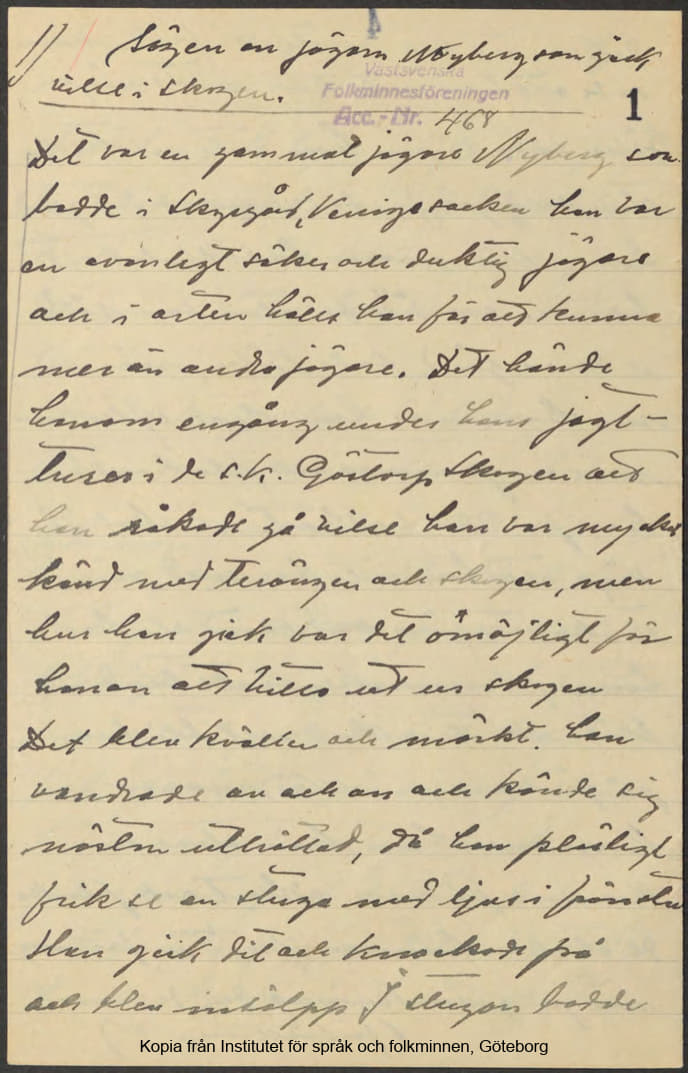 1)
Sägen en jägare Nyberg som gick
vilse i skogen.
Västsvenska
Folkminnesföreningen
Acc.-Nr. 468
1
Det var en gammal jägare Nyberg som
bodde i Skogsgård, han var
en ovanligt säker och duktig jägare
och i orten hölls han för att kunna
mer än andra jägare. Det hände
honom engång under hans jagt-
turer i de s.k. Göstorp skogen att
han råkade gå vilse han var mycket
känd med terängen och skogen, men
hur han gick var det omöjligt för
honom att hitta ut ur skogen
Det blev kväller och mörkt. han
vandrade an och an och kände sig
nöstan uttröttad, då han plösligt
frik se en stuga med ljus i fönstre
Han gick dit och knackade på
och blev insläpp I stugan bodde
Kopia från Institutet för språk och folkminnen, Göteborg